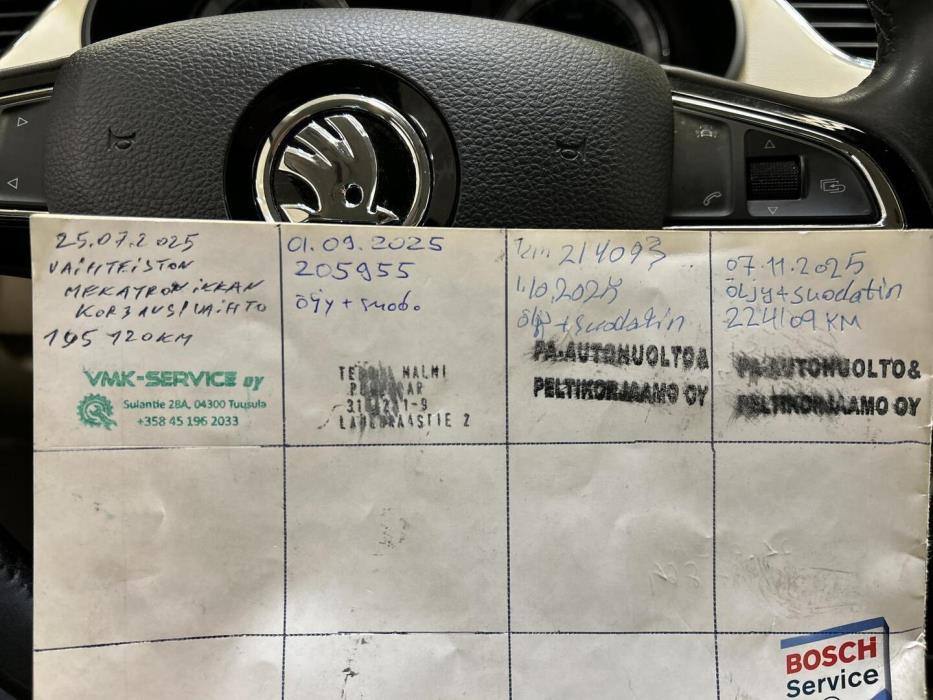 25.07.2025
VAIHTEISTON
MEKATRONIIKKAN
KORJAUS/VAIHTO
195 120KM
VMK-SERVICE oy
Sulantie 28A, 04300 Tuusula
+358 45 196 2033
01.09.2025
205955
öljy + suod.
HALMI
2
km 214093
1.10.2025
öljy + suodatin
PA-AUTOHUOLTO&
PELTIKORJAAMO OY
07.11.2025
Öljy+suodatin
224109 KM
PA-AUTOHUOLTO&
PELTIKORJAAMO OY
BOSCH
Service